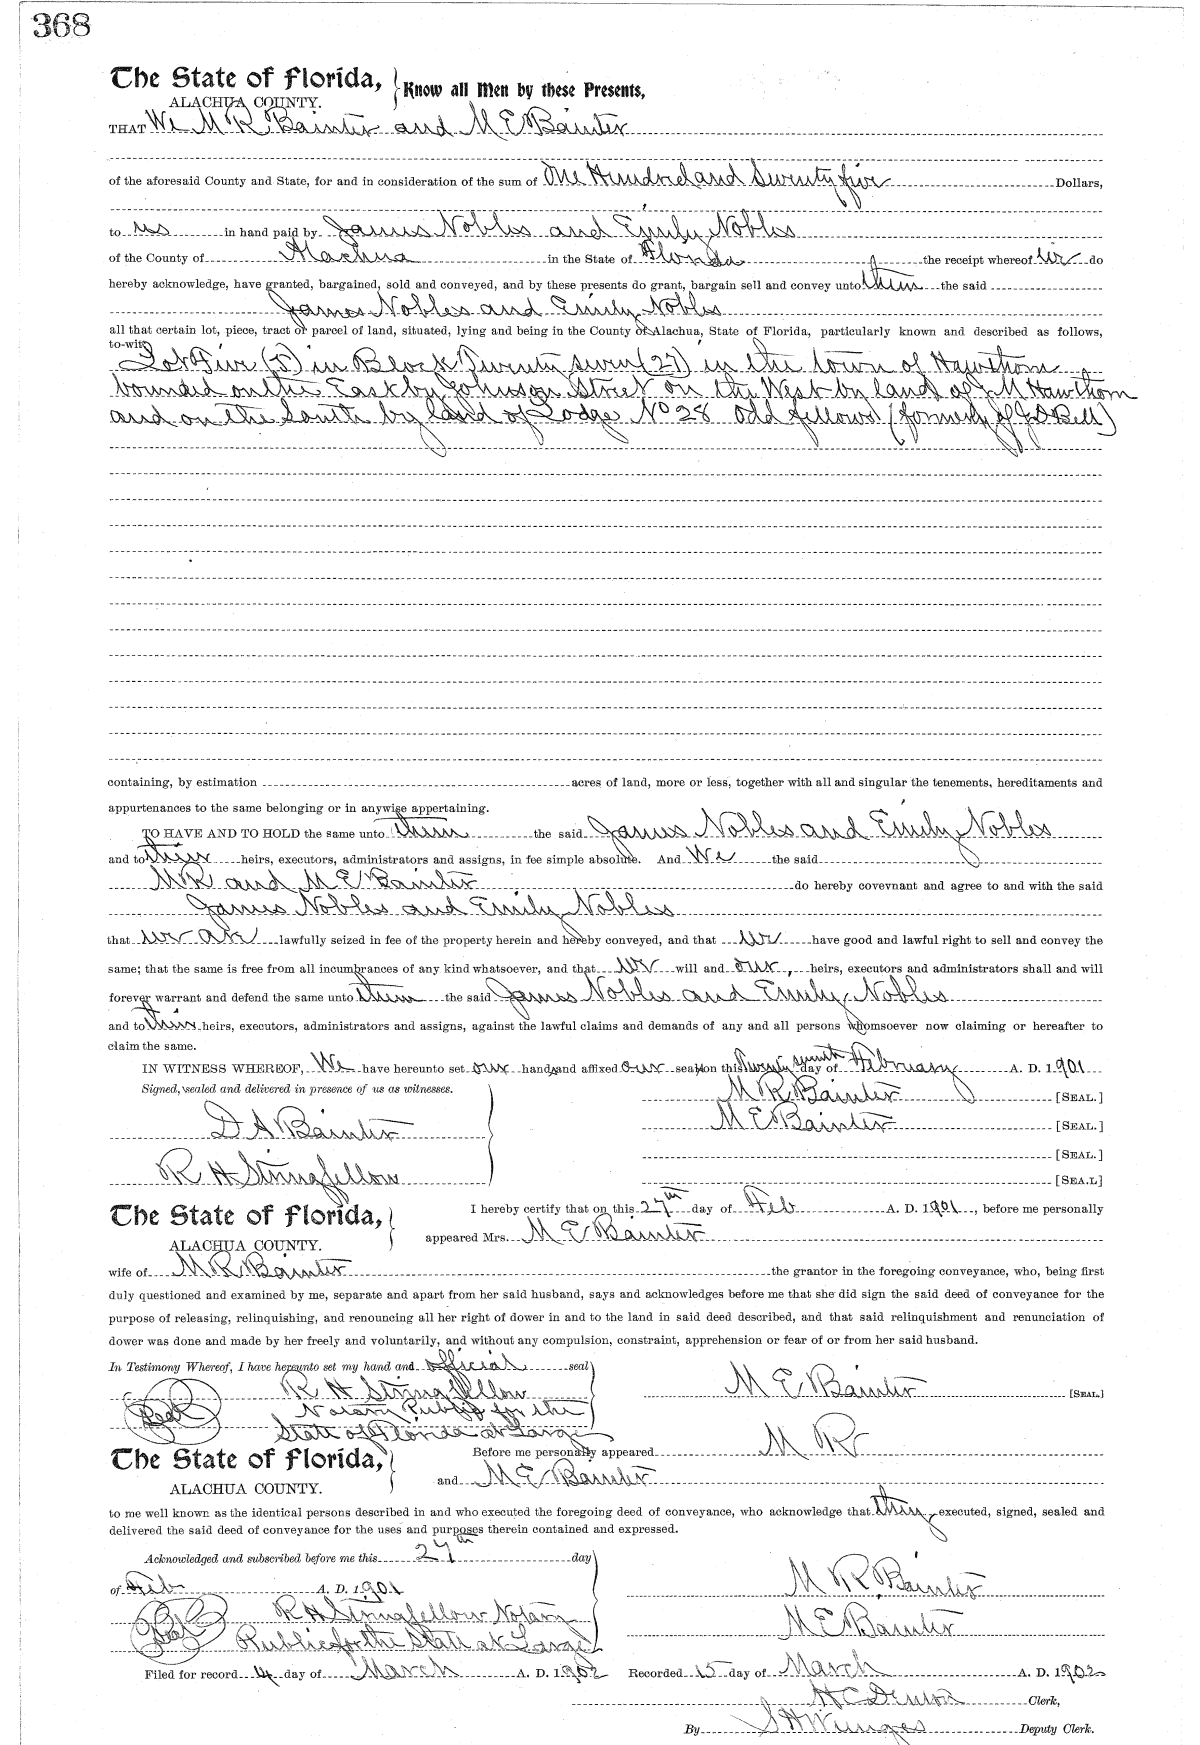 368
The State of Florida, Know all Men by these Presents,
ALACHUA COUNTY.
THAT We M R Bainter and M E Bainter
of the aforesaid County and State, for and in consideration of the sum of One Hundred and Seventy five Dollars,
to us in hand paid by James Nobles and Emily Nobles
of the County of Alachua in the State of Florida the receipt whereof we do
hereby acknowledge, have granted, bargained, sold and conveyed, and by these presents do grant, bargain sell and convey unto them the said
James Nobles and Emily Nobles
all that certain lot, piece, tract or parcel of land, situated, lying and being in the County of Alachua, State of Florida, particularly known and described as follows,
to-wit:
Lot Five (5) in Block Twenty seven (27) in the town of Hawthorn
bounded on the East by Johnson Street on the West by lands of J M Hawthorn
and on the South by land of Lodge No 28 Odd fellows (formerly of J D Bell)
containing, by estimation acres of land, more or less, together with all and singular the tenements, hereditaments and
appurtenances to the same belonging or in anywise appertaining.
TO HAVE AND TO HOLD the same unto them the said James Nobles and Emily Nobles
and to their heirs, executors, administrators and assigns, in fee simple absolute. And We the said
M R and M E Bainter do hereby covevnant and agree to and with the said
James Nobles and Emily Nobles
that we are lawfully seized in fee of the property herein and hereby conveyed, and that we have good and lawful right to sell and convey the
same; that the same is free from all incumbrances of any kind whatsoever, and that we will and our, heirs, executors and administrators shall and will
forever warrant and defend the same unto them the said James Nobles and Emily Nobles
and to their heirs, executors, administrators and assigns, against the lawful claims and demands of any and all persons whomsoever now claiming or hereafter to
claim the same.
IN WITNESS WHEREOF, We have hereunto set our hands and affixed our seals on this Twenty seventh day of February A. D. 1901
Signed, sealed and delivered in presence of us as witnesses.
M R Bainter [SEAL.]
M E Bainter [SEAL.]
D A Bainter
[SEAL.]
R H Stringfellow [SEA.L]
The State of Florida, I hereby certify that on this 27th day of Feb A. D. 1901, before me personally
ALACHUA COUNTY. appeared Mrs. M E Bainter
wife of M R Bainter the grantor in the foregoing conveyance, who, being first
duly questioned and examined by me, separate and apart from her said husband, says and acknowledges before me that she did sign the said deed of conveyance for the
purpose of releasing, relinquishing, and renouncing all her right of dower in and to the land in said deed described, and that said relinquishment and renunciation of
dower was done and made by her freely and voluntarily, and without any compulsion, constraint, apprehension or fear of or from her said husband.
In Testimony Whereof, I have hereunto set my hand and official seal
R H Stringfellow M E Bainter [SEAL.]
Seal Notary Public for the
State of Florida at Large
The State of Florida, Before me personally appeared M R
ALACHUA COUNTY. and M E Bainter
to me well known as the identical persons described in and who executed the foregoing deed of conveyance, who acknowledge that they executed, signed, sealed and
delivered the said deed of conveyance for the uses and purposes therein contained and expressed.
Acknowledged and subscribed before me this 27th day
of Feb A. D. 1901 M R Bainter
R H Stringfellow Notary
Seal Public for the State at Large M E Bainter
Filed for record 4 day of March A. D. 1902 Recorded 15 day of March A. D. 1902
H C Denton Clerk,
By Deputy Clerk.